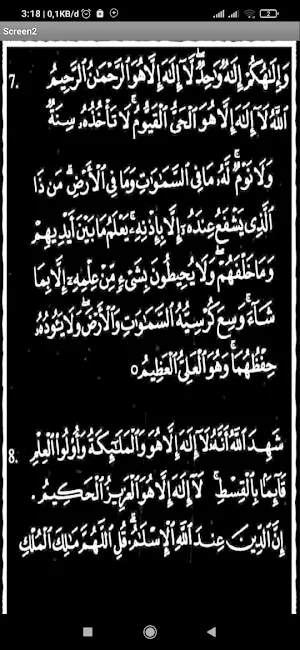 3:18 | 0,1KB/d
Screen2
7. وَإِلَٰهُكُمْ إِلَٰهٌ وَاحِدٌ ۖ لَآ إِلَٰهَ إِلَّا هُوَ الرَّحْمَٰنُ الرَّحِيمُ
اللَّهُ لَآ إِلَٰهَ إِلَّا هُوَ الْحَيُّ الْقَيُّومُ ۚ لَا تَأْخُذُهُۥ سِنَةٌ
وَلَا نَوْمٌ ۚ لَّهُۥ مَا فِى السَّمَٰوَٰتِ وَمَا فِى الْأَرْضِ ۗ مَن ذَا
الَّذِى يَشْفَعُ عِندَهُۥٓ إِلَّا بِإِذْنِهِۦ ۚ يَعْلَمُ مَا بَيْنَ أَيْدِيهِمْ
وَمَا خَلْفَهُمْ ۖ وَلَا يُحِيطُونَ بِشَىْءٍ مِّنْ عِلْمِهِۦٓ إِلَّا بِمَا
شَآءَ ۚ وَسِعَ كُرْسِيُّهُ السَّمَٰوَٰتِ وَالْأَرْضَ ۖ وَلَا يَـُٔودُهُۥ
حِفْظُهُمَا ۚ وَهُوَ الْعَلِىُّ الْعَظِيمُ ٥
8. شَهِدَ اللَّهُ أَنَّهُۥ لَآ إِلَٰهَ إِلَّا هُوَ وَالْمَلَٰٓئِكَةُ وَأُو۟لُوا الْعِلْمِ
قَآئِمًۢا بِالْقِسْطِ ۚ لَآ إِلَٰهَ إِلَّا هُوَ الْعَزِيزُ الْحَكِيمُ .
إِنَّ الدِّينَ عِندَ اللَّهِ الْإِسْلَٰمُ ۗ قُلِ اللَّهُمَّ مَٰلِكَ الْمُلْكِ